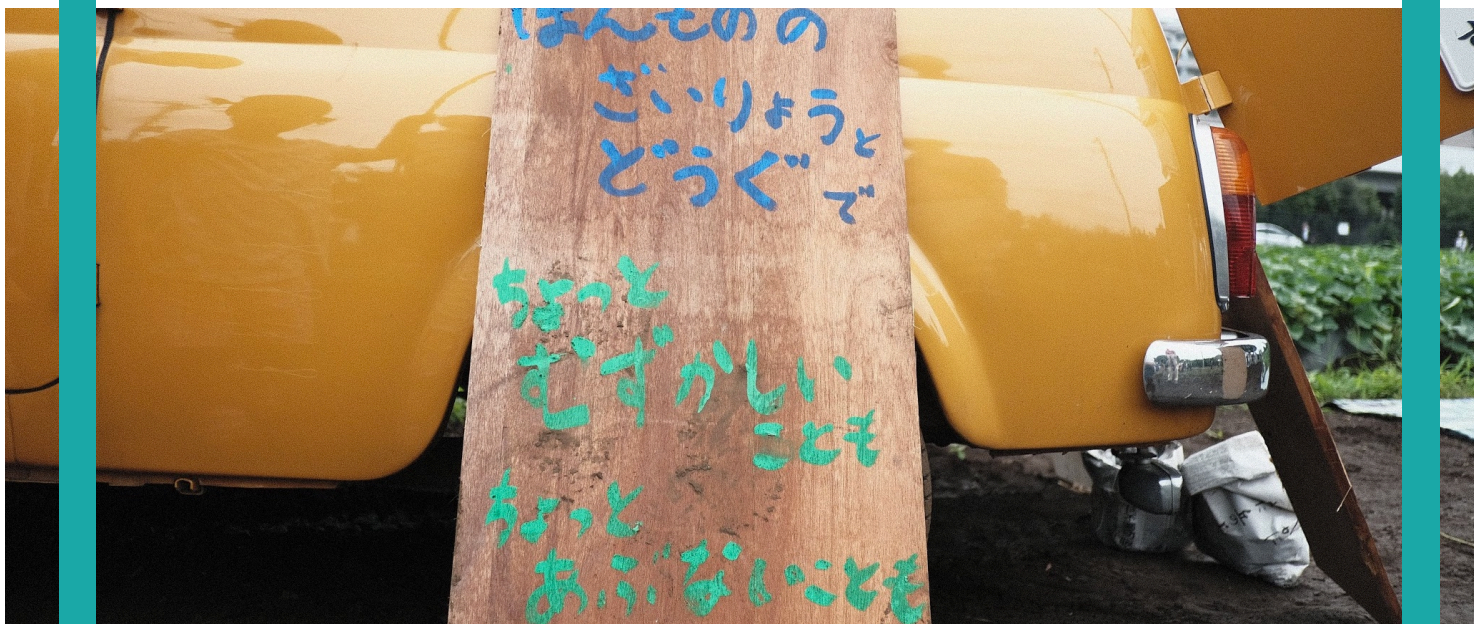 ほんものの
ざいりょうと
どうぐで
ちょっと
むずかしい
ことも
ちょっと
あぶないことも